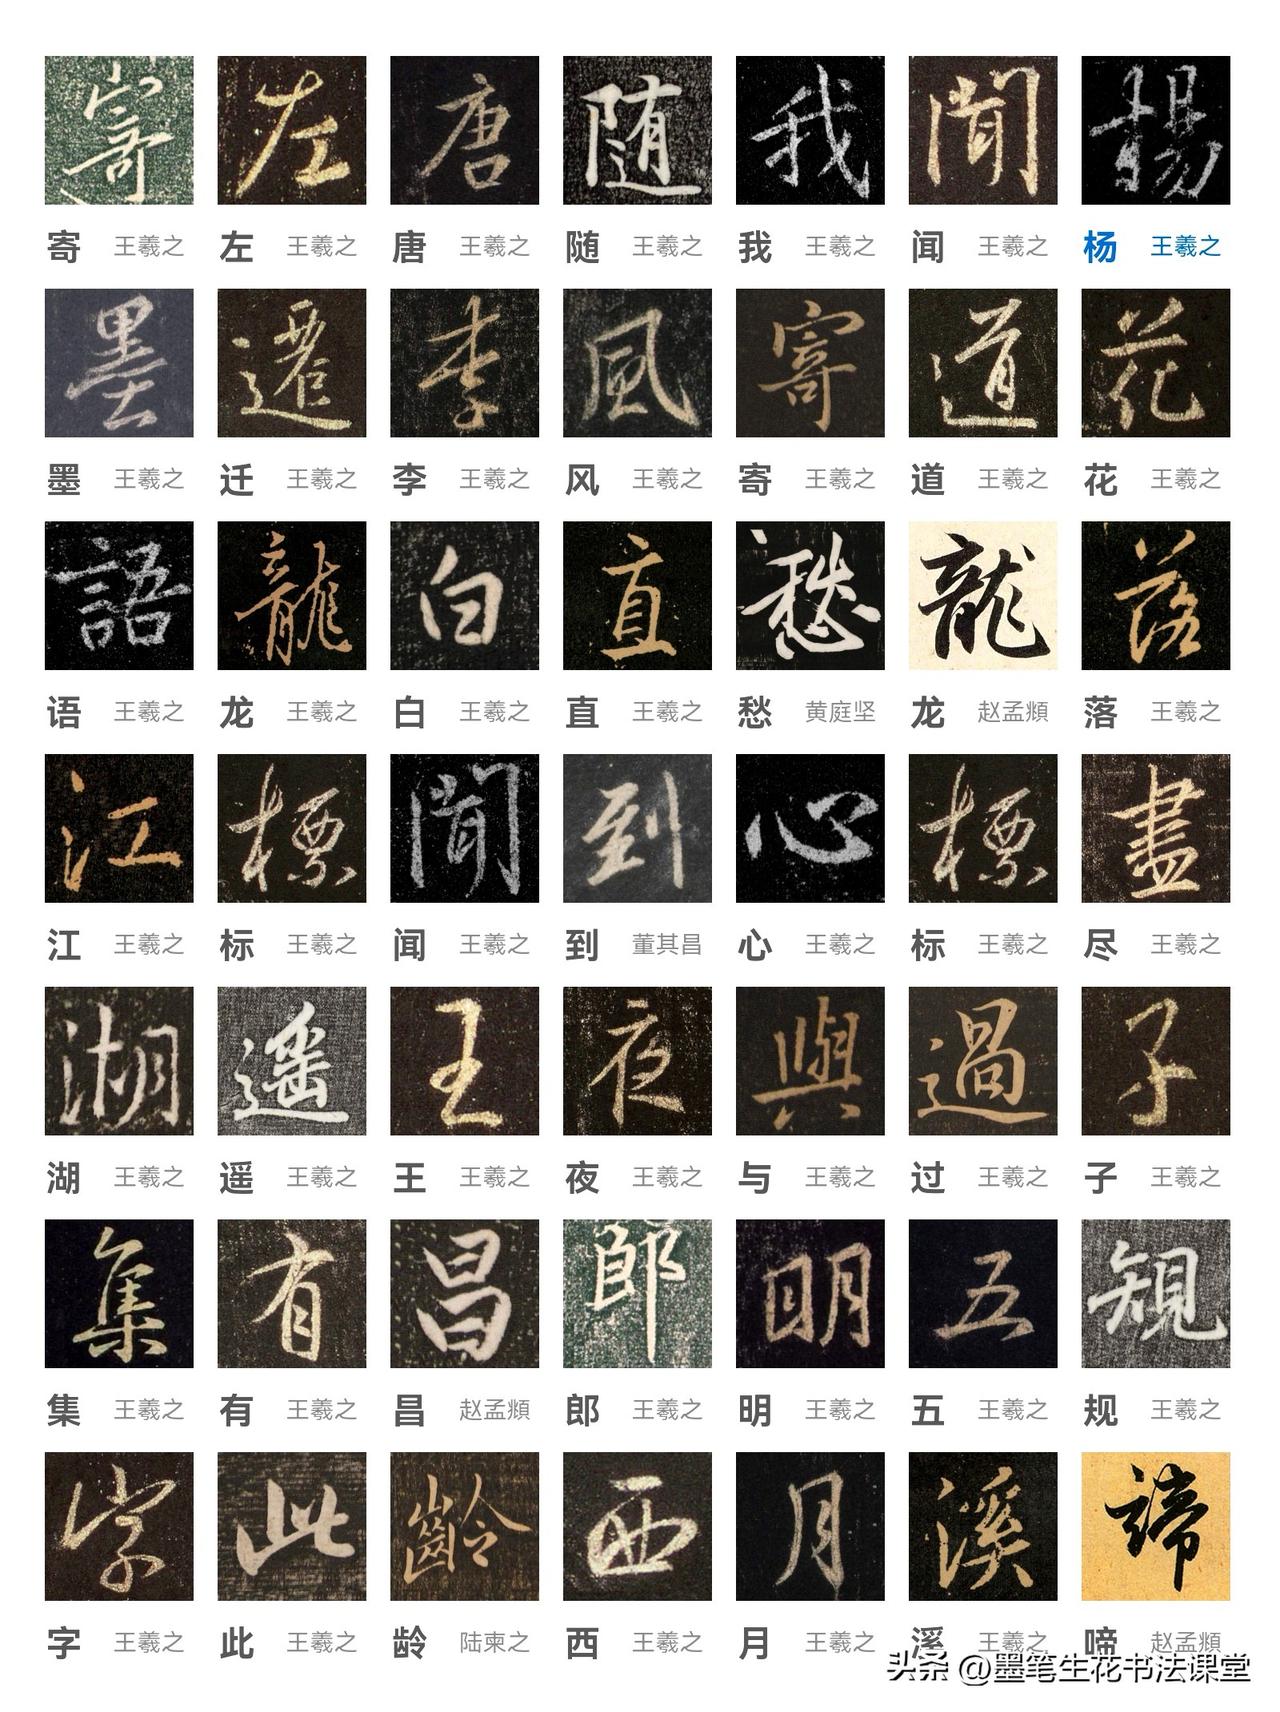 寄 左 唐 随 我 聞 楊
寄 王羲之 左 王羲之 唐 王羲之 随 王羲之 我 王羲之 闻 王羲之 杨 王羲之
墨 遷 李 風 寄 道 花
墨 王羲之 迁 王羲之 李 王羲之 风 王羲之 寄 王羲之 道 王羲之 花 王羲之
語 龍 白 直 愁 龍 落
语 王羲之 龙 王羲之 白 王羲之 直 王羲之 愁 黄庭坚 龙 赵孟頫 落 王羲之
江 標 聞 到 心 標 盡
江 王羲之 标 王羲之 闻 王羲之 到 董其昌 心 王羲之 标 王羲之 尽 王羲之
湖 遥 王 夜 與 過 子
湖 王羲之 遥 王羲之 王 王羲之 夜 王羲之 与 王羲之 过 王羲之 子 王羲之
集 有 昌 郎 明 五 規
集 王羲之 有 王羲之 昌 赵孟頫 郎 王羲之 明 王羲之 五 王羲之 规 王羲之
字 此 齡 西 月 溪 諦
字 王羲之 此 王羲之 龄 陆柬之 西 王羲之 月 王羲之 溪 王羲之 啼 赵孟頫
头条 @墨笔生花书法课堂